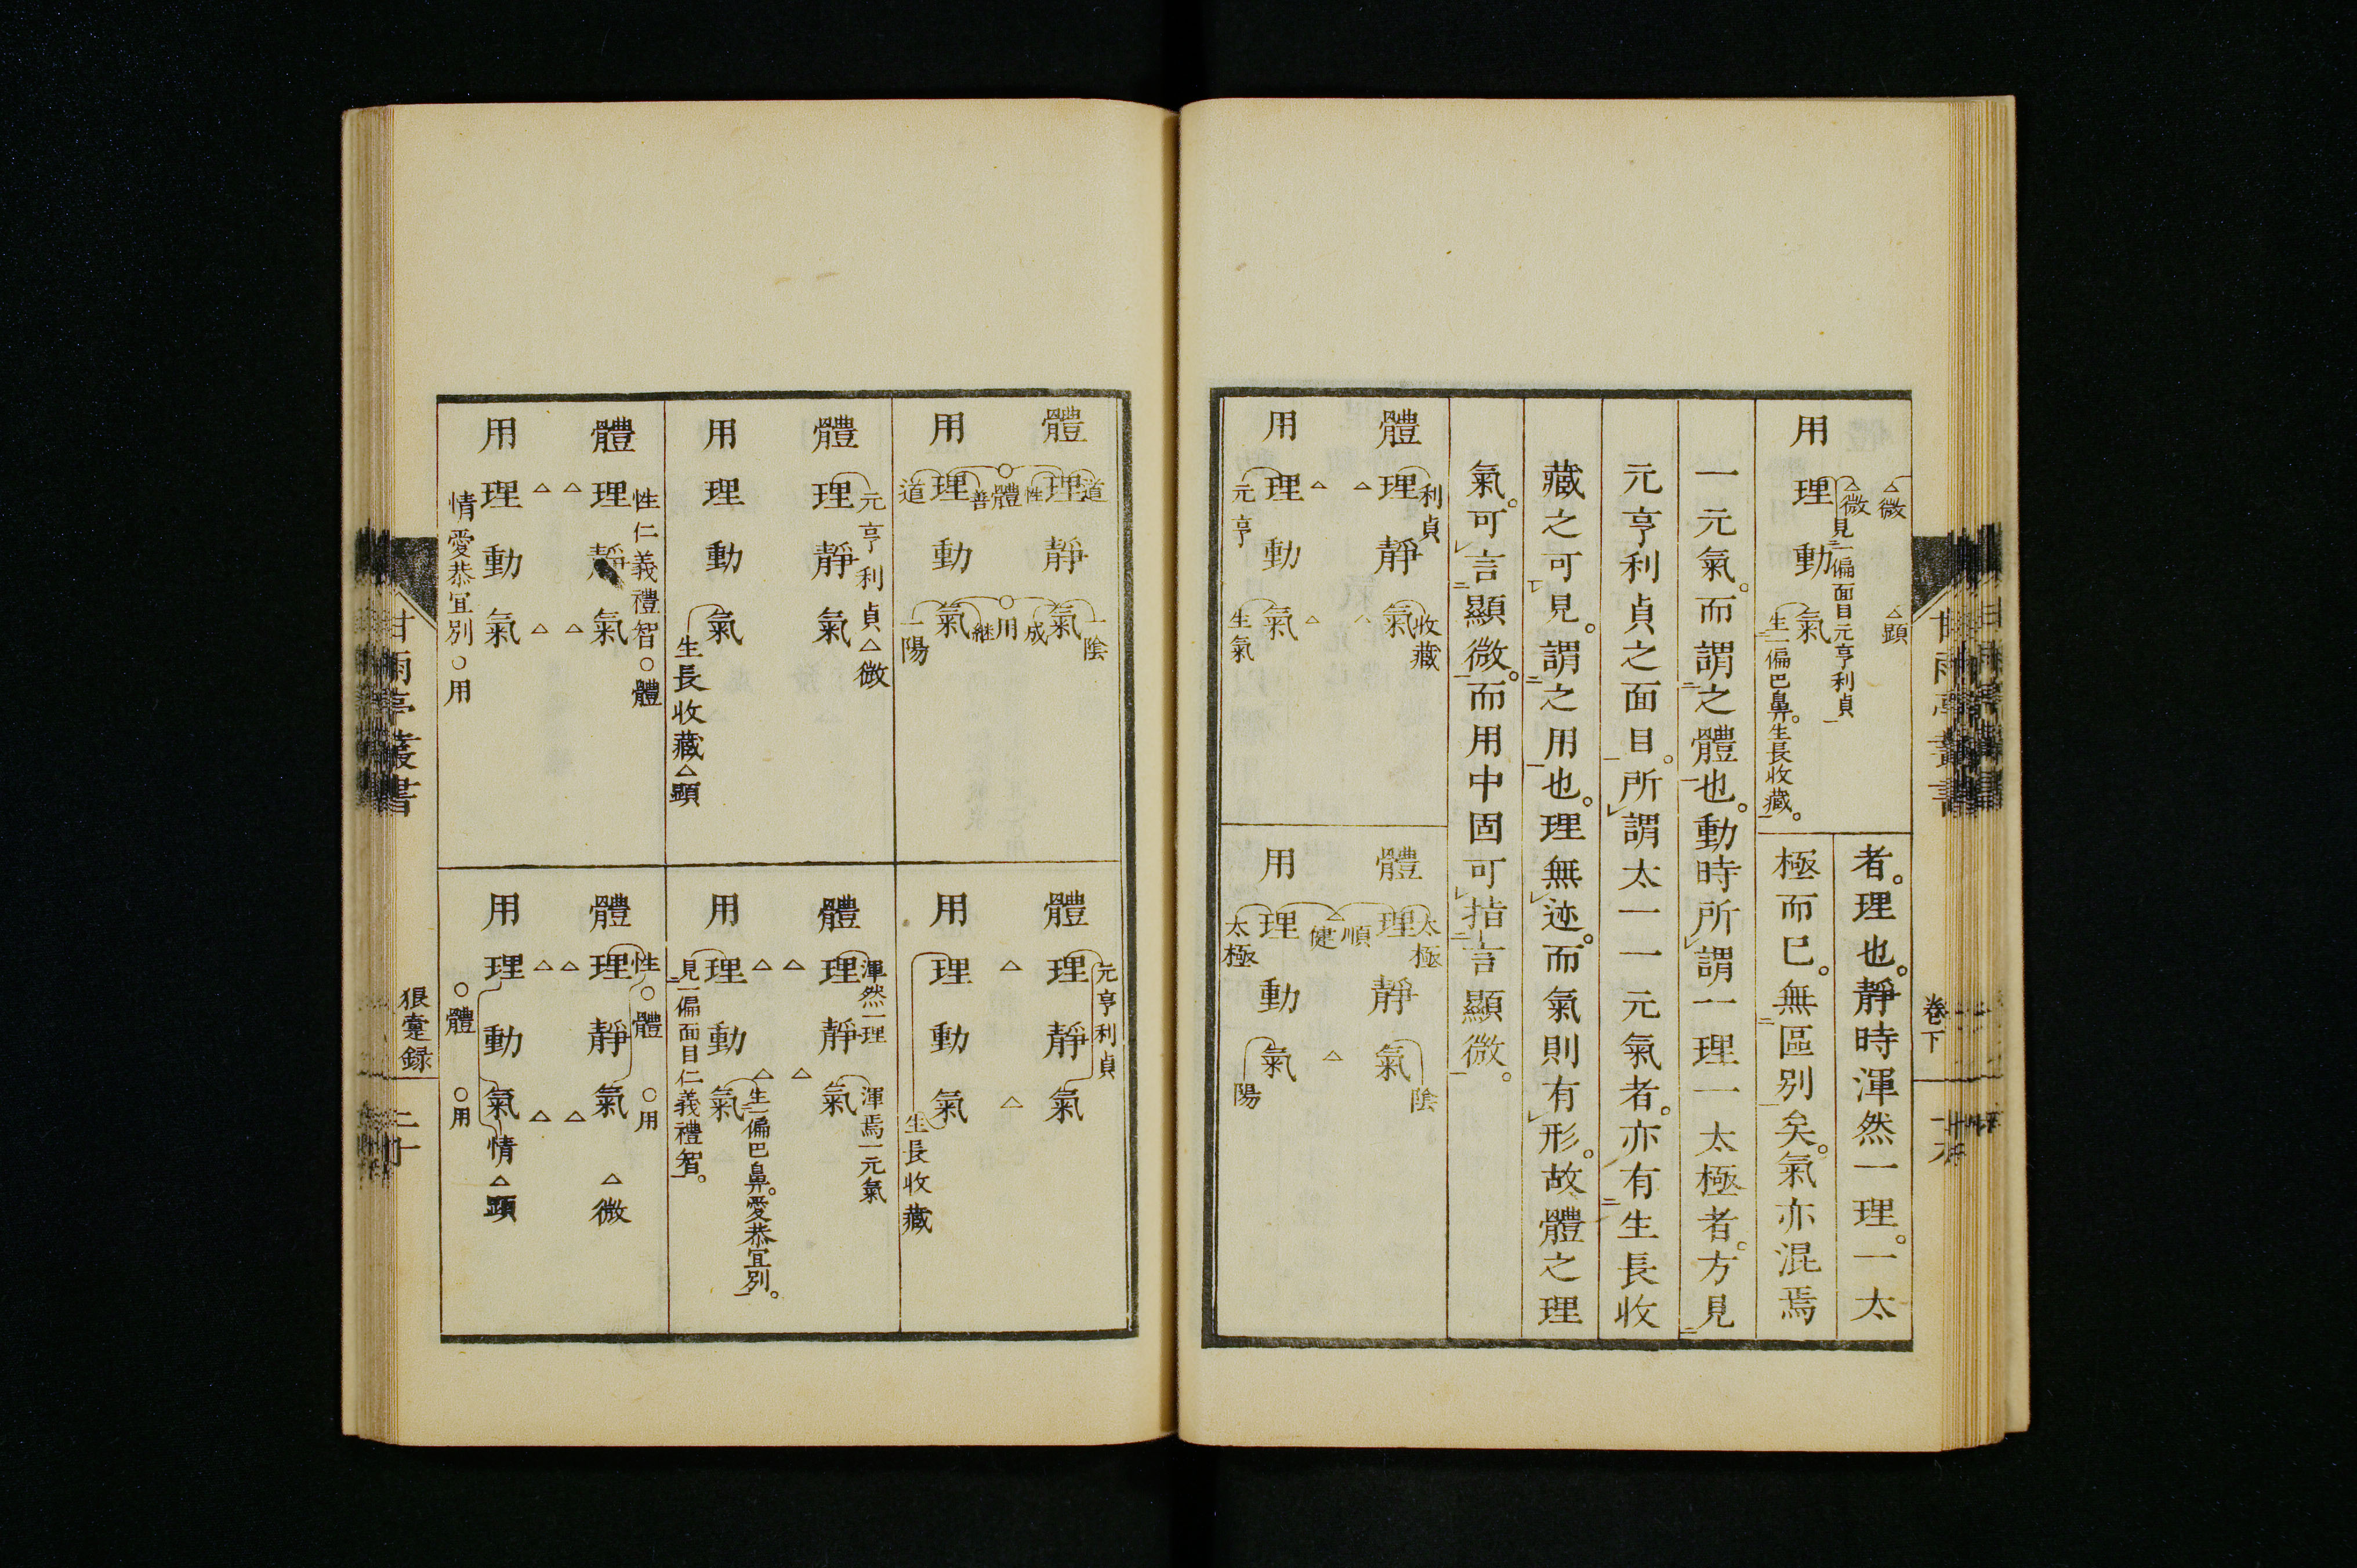 △微　△顕
用　理　動　氣
△微
見二一偏面目元亨利貞一
生二一偏巴鼻。生長收藏一。
者。理也。靜時渾然一理。一太
極而已。無二區別一矣。氣亦混焉
一元氣。而謂二之體一也。動時所謂一理一太極者。方見二
元亨利貞之面目一。所謂太一一元氣者。亦有二生長收
藏之可一レ見。謂二之用一也。理無レ迹。而氣則有レ形。故體之理
氣。可レ言二顯微一。而用中固可レ指二言顯微一。
體　理　靜　氣
利貞
收藏
△　△
△　△
用　理　動　氣
元亨
生氣
體　理　靜　氣
太極
陰
順
健
△
△
用　理　動　氣
太極
陽
卷下
甘雨亭叢書
體　理　靜　氣
道
一陰
性
成
○
體
○
用
善
繼
用　理　動　氣
道
一陽
體　理　靜　氣
元亨利貞
△
△
用　理　動　氣
生長收藏
體　理　靜　氣
元亨利貞△微
用　理　動　氣
生長收藏△顕
體　理　靜　氣
渾然一理
渾焉一元氣
△　△
△　△
用　理　動　氣
生二一偏巴鼻。愛恭宜別一。
見二一偏面目仁義禮智一。
體　理　靜　氣
性仁義禮智○體
△　△
△　△
用　理　動　氣
情愛恭宜別○用
體　理　靜　氣　△微
性○體　○用
△　△
△　△
用　理　動　氣　情△顕
○體　○用
甘雨亭叢書
狼疐録
二十